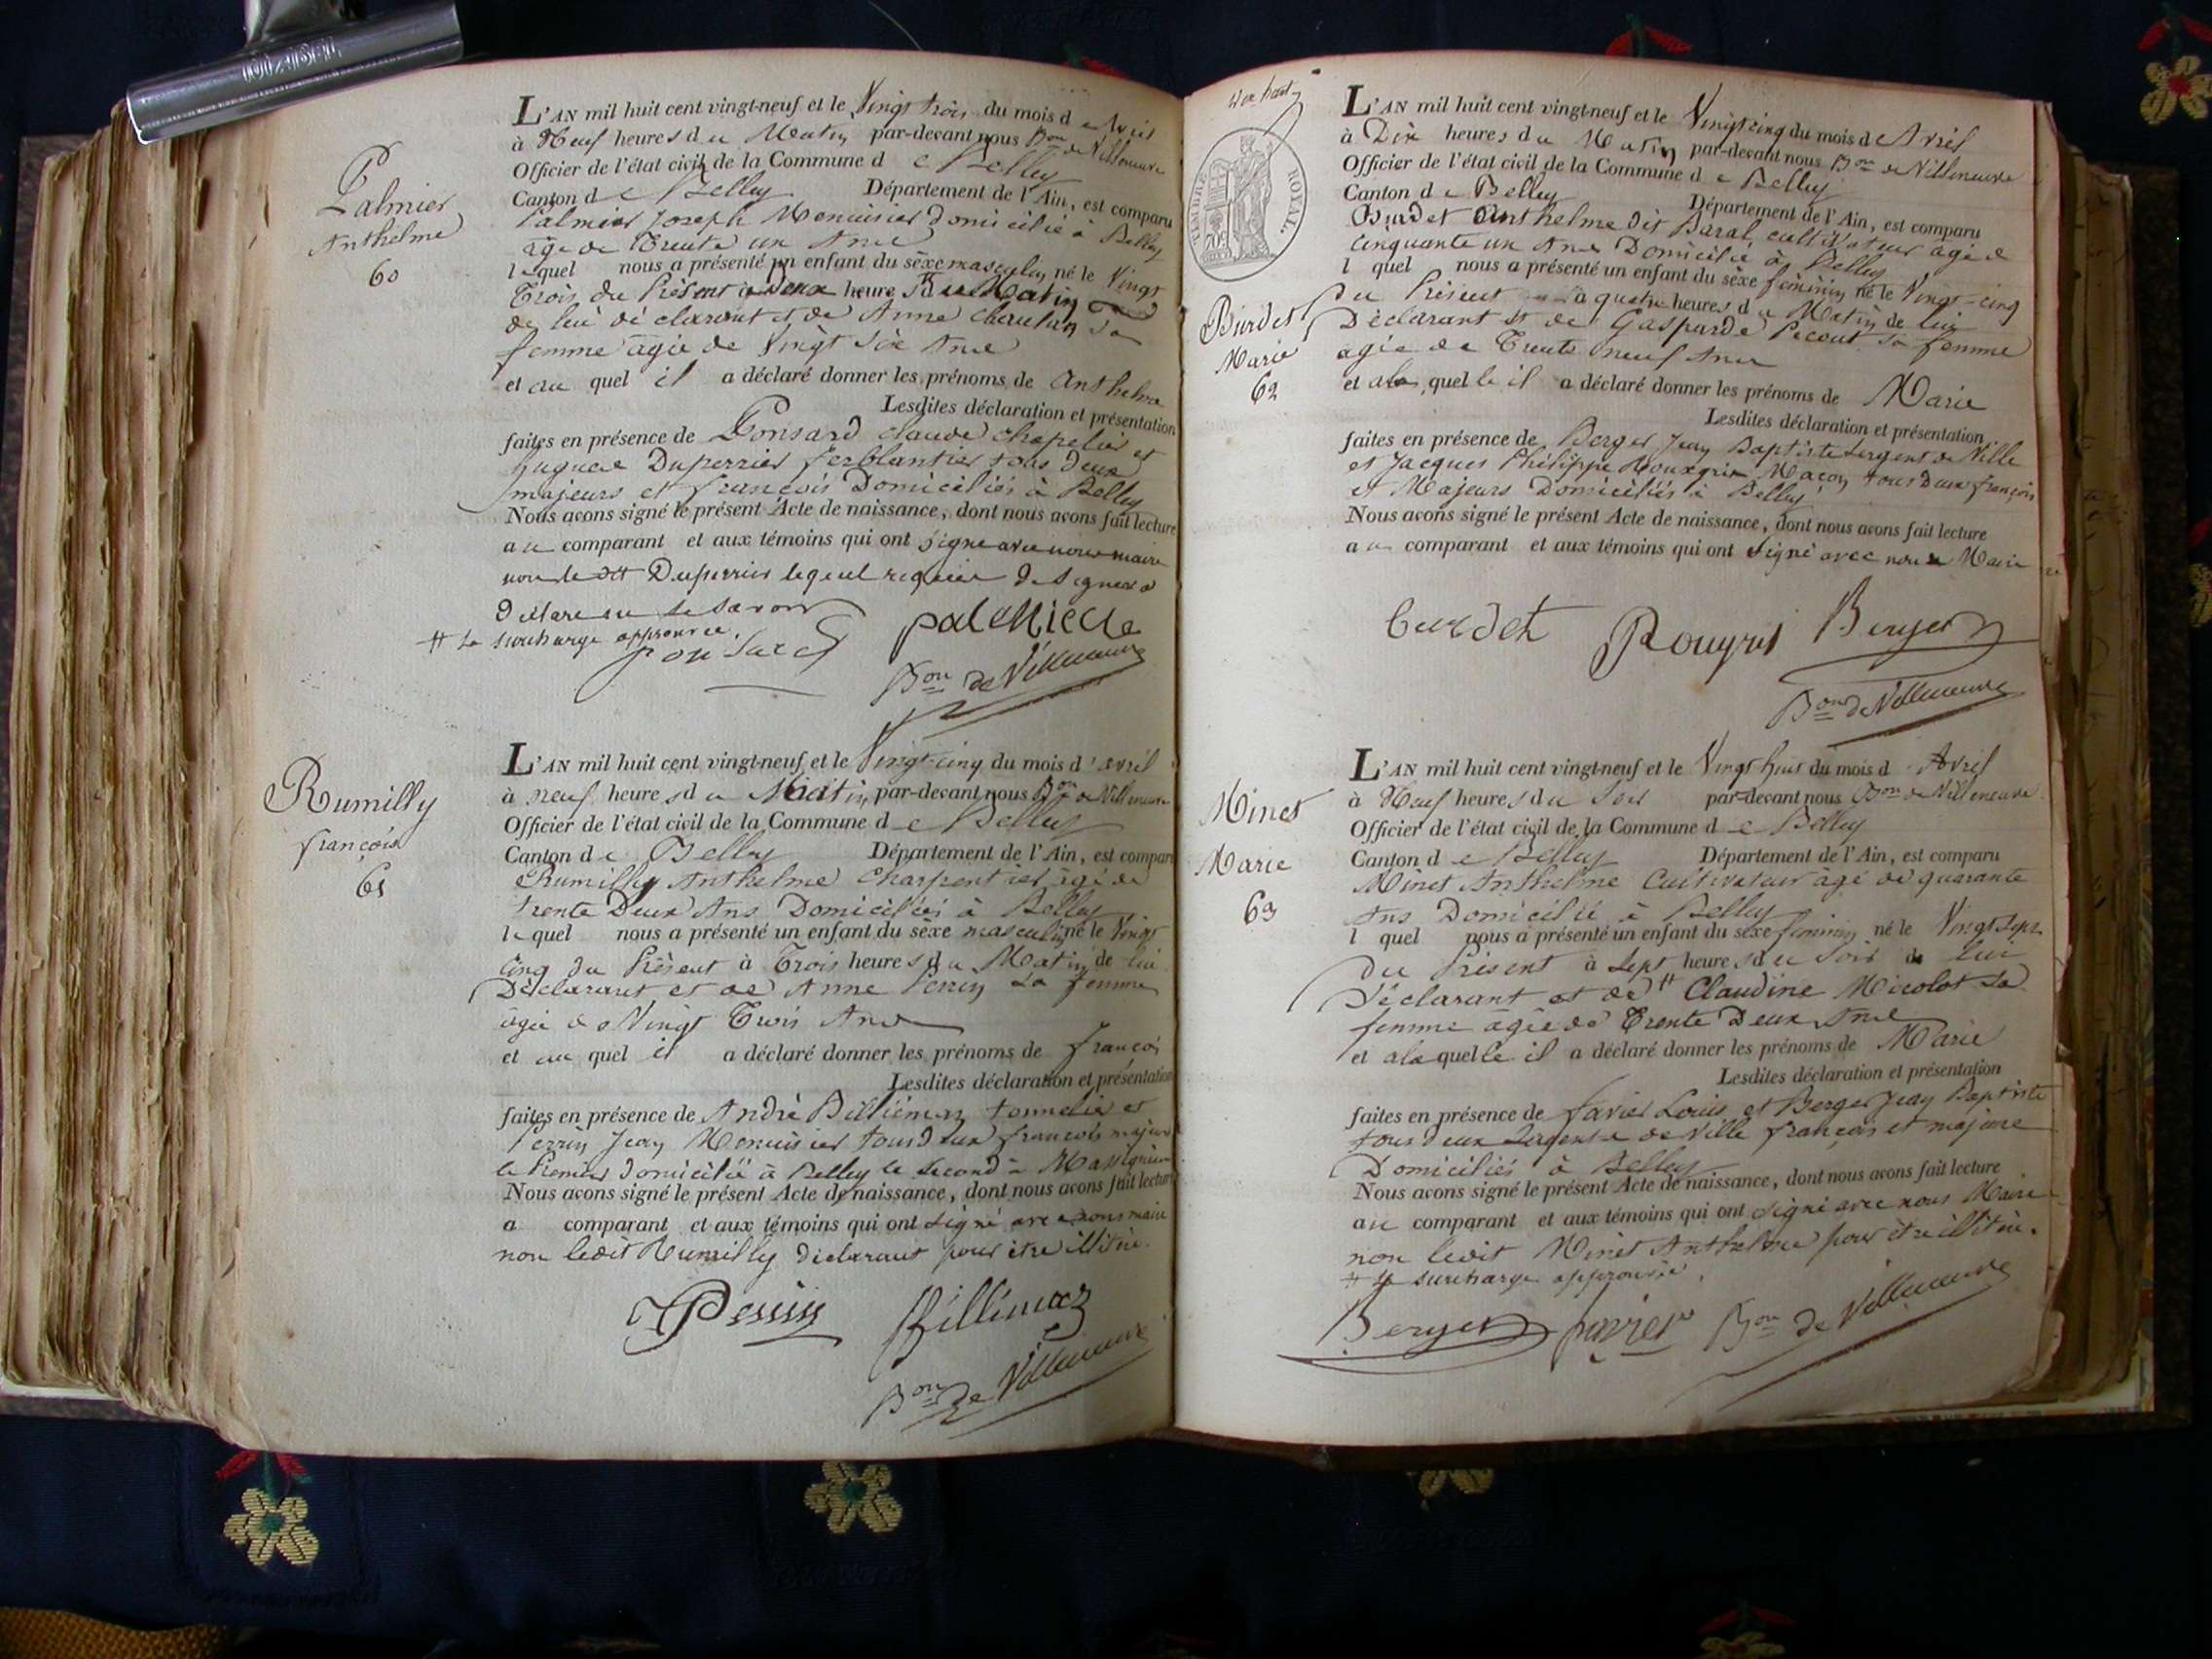 Palmier
Anthelme
60
L'AN mil huit cent vingt-neuf et le Vingt trois du mois d'Avril
à Neuf heures du Matin par-devant nous Bon de Villeneuve
Officier de l'état civil de la Commune de Belley
Canton de Belley Département de l'Ain, est comparu
Palmier Joseph Menuisier domicilié à Belley
âgé de Trente un Ans
lequel nous a présenté un enfant du sèxe masculin né le Vingt
Trois du Présent à Deux heures du Matin
de lui déclarant et de Anne Chaulan sa
femme agée de Vingt Six Ans
et au quel il a déclaré donner les prénoms de Anthelme
Lesdites déclaration et présentation
faites en présence de Ponsard Claude chapelier et
hugues Duperrier ferblantier tous deux
majeurs et françois Domiciliés à Belley
Nous avons signé le présent Acte de naissance, dont nous avons fait lecture
au comparant et aux témoins qui ont signé avec nous maire
non le dit Duperrier lequel requis de signer a
déclaré ne le savoir
# la surcharge approuvée.
ponsard
palmier
Bon de Villeneuve
Rumilly
françois
61
L'AN mil huit cent vingt-neuf et le Vingt-cinq du mois d'avril
à neuf heures du Matin par-devant nous Bon de Villeneuve
Officier de l'état civil de la Commune de Belley
Canton de Belley Département de l'Ain, est comparu
Rumilly Anthelme Charpentier âgé de
trente Deux Ans Domicilié à Belley
lequel nous a présenté un enfant du sèxe masculin né le Vingt
Cinq du Présent à Trois heures du Matin de lui
Déclarant et de Anne Perrin sa femme
âgée de Vingt Trois Ans
et au quel il a déclaré donner les prénoms de françois
Lesdites déclaration et présentation
faites en présence de André Billiémaz tonnelier et
Perrin Jean Menuisier tous deux françois majeurs
le Premier domicilié à Belley le second à Massignieu
Nous avons signé le présent Acte de naissance, dont nous avons fait lecture
a comparant et aux témoins qui ont signé avec nous maire
non ledit Rumilly déclarant pour être illitéré.
Perrin
Billiémaz
Bon de Villeneuve
TIMBRE ROYAL
Burdet
Marie
62
L'AN mil huit cent vingt-neuf et le Vingt cinq du mois de Avril
à Dix heures du Matin par-devant nous Bon de Villeneuve
Officier de l'état civil de la Commune de Belley
Canton de Belley Département de l'Ain, est comparu
Burdet Anthelme dit Baral cultivateur agé de
Cinquante un Ans Domicilié à Belley
l quel nous a présenté un enfant du sèxe féminin né le Vingt-cinq
du Présent à quatre heures du Matin de lui
Déclarant et de Gasparde Pecout sa femme
agée de Trente neuf Ans
et a la quelle il a déclaré donner les prénoms de Marie
Lesdites déclaration et présentation
faites en présence de Berger Jean Baptiste Sergent de Ville
et Jacques Philippe Macon tous Deux françois
et Majeurs Domiciliés à Belley
Nous avons signé le présent Acte de naissance, dont nous avons fait lecture
au comparant et aux témoins qui ont signé avec nous Maire
Burdet
Berger
Bon de Villeneuve
Minet
Marie
63
L'AN mil huit cent vingt-neuf et le Vingt huit du mois d Avril
à Neuf heures du Soir par-devant nous Bon de Villeneuve
Officier de l'état civil de la Commune de Belley
Canton de Belley Département de l'Ain, est comparu
Minet Anthelme Cultivateur âgé de quarante
Ans Domicilié à Belley
l quel nous a présenté un enfant du sèxe féminin né le Vingt Sept
du Présent à Sept heures du Soir de lui
Déclarant et de # Claudine Micolot sa
femme âgée de Trente Deux Ans
et a la quelle il a déclaré donner les prénoms de Marie
Lesdites déclaration et présentation
faites en présence de favier Louis et Berger Jean Baptiste
tous deux Sergents de Ville françois et majeurs
Domiciliés à Belley
Nous avons signé le présent Acte de naissance, dont nous avons fait lecture
au comparant et aux témoins qui ont signé avec nous Maire
non ledit Minet Anthelme pour être illitéré.
# la surcharge approuvée.
Berger
favier
Bon de Villeneuve